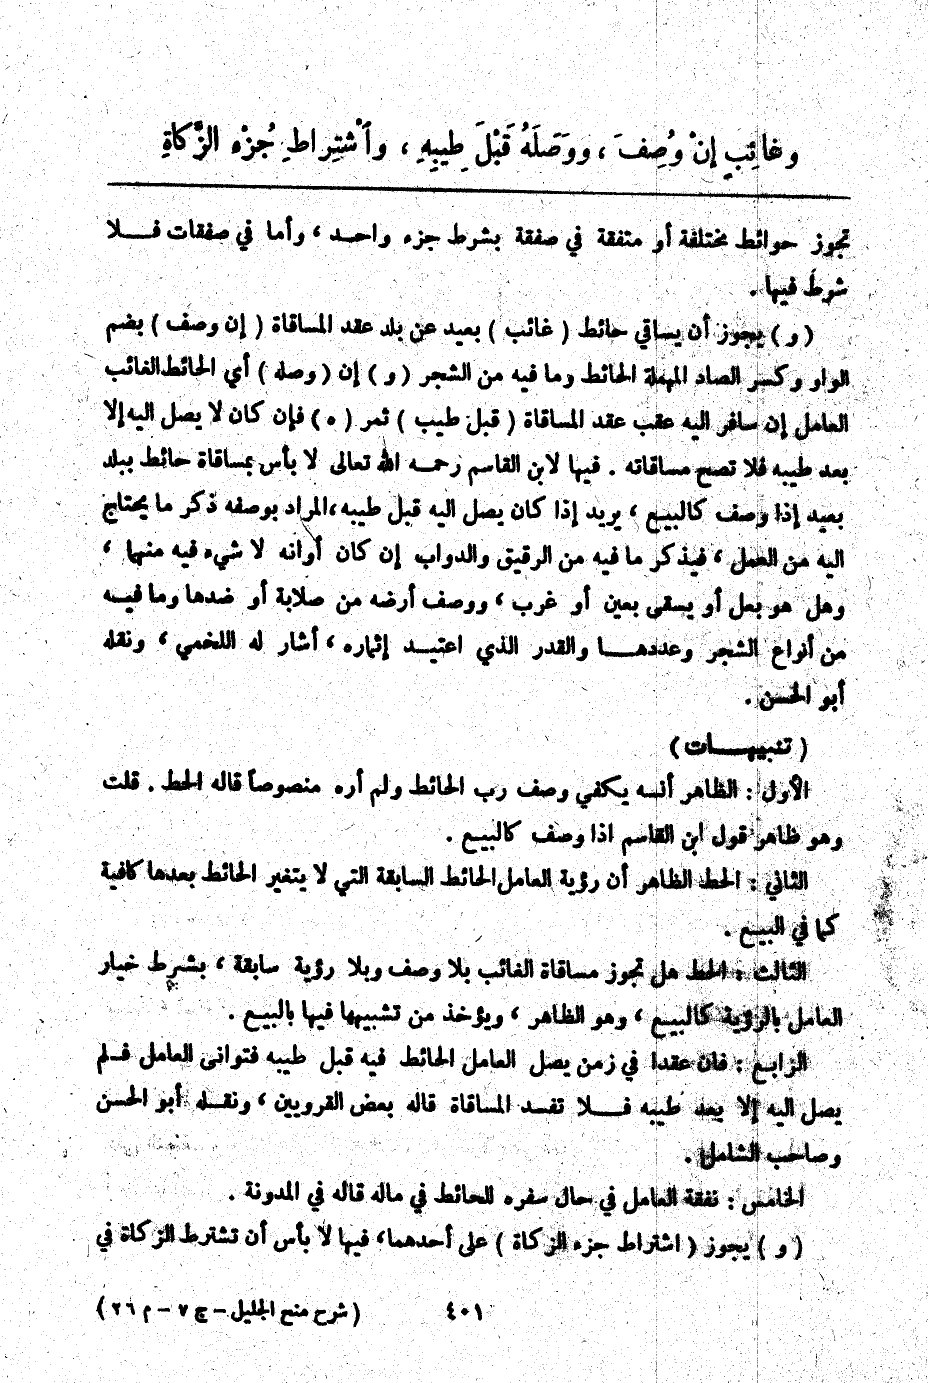 وغائِبٍ إنْ وُصِفَ ، ووَصَلَهُ قَبْلَ طِيبِهِ ، وٱشْتِراطِ جُزْءِ الزَّكاةِ
تجوز حوائط مختلفة أو متفقة في صفقة بشرط جزء واحد ، وأما في صفقات فلا
شرط فيها .
( و ) يجوز أن يساقي حائط ( غائب ) بعيد عن بلد عقد المساقاة ( إن وصف ) بضم
الواو وكسر الصاد المهملة الحائط وما فيه من الشجر ( و ) إن ( وصله ) أي الحائط الغائب
العامل إن سافر اليه عقب عقد المساقاة ( قبل طيب ) ثمر ( ه ) فإن كان لا يصل اليه إلا
بعد طيبه فلا تصح مساقاته . فيها لابن القاسم رحمه الله تعالى لا بأس بمساقاة حائط ببلد
بعيد إذا وصف كالبيع ، يريد إذا كان يصل اليه قبل طيبه ، المراد بوصفه ذكر ما يحتاج
اليه من العمل ، فيذكر ما فيه من الرقيق والدواب إن كان أوانه لا شيء فيه منها ،
وهل هو بعل أو يسقى بعين أو غرب ، ووصف أرضه من صلابة أو ضدها وما فيه
من أنواع الشجر وعددها والقدر الذي اعتيد إثماره ، أشار له اللخمي ، ونقله
أبو الحسن .
( تنبيهات )
الأول : الظاهر أنه يكفي وصف رب الحائط ولم أره منصوصاً قاله الحط . قلت
وهو ظاهر قول ابن القاسم اذا وصف كالبيع .
الثاني : الحط الظاهر أن رؤية العامل الحائط السابقة التي لا يتغير الحائط بعدها كافية
كما في البيع .
الثالث : الحط هل تجوز مساقاة الغائب بلا وصف وبلا رؤية سابقة ، بشرط خيار
العامل بالرؤية كالبيع ، وهو الظاهر ، ويؤخذ من تشبيهها فيها بالبيع .
الرابع : فان عقدا في زمن يصل العامل الحائط فيه قبل طيبه فتوانى العامل فلم
يصل اليه إلا بعد طيبه فلا تفسد المساقاة قاله بعض القرويين ، ونقله أبو الحسن
وصاحب الشامل .
الخامس : نفقة العامل في حال سفره للحائط في ماله قاله في المدونة .
( و ) يجوز ( اشتراط جزء الزكاة ) على أحدهما، فيها لا بأس أن تشترط الزكاة في
٤٠١ ( شرح منح الجليل – ج ٧ – م ٢٦ )